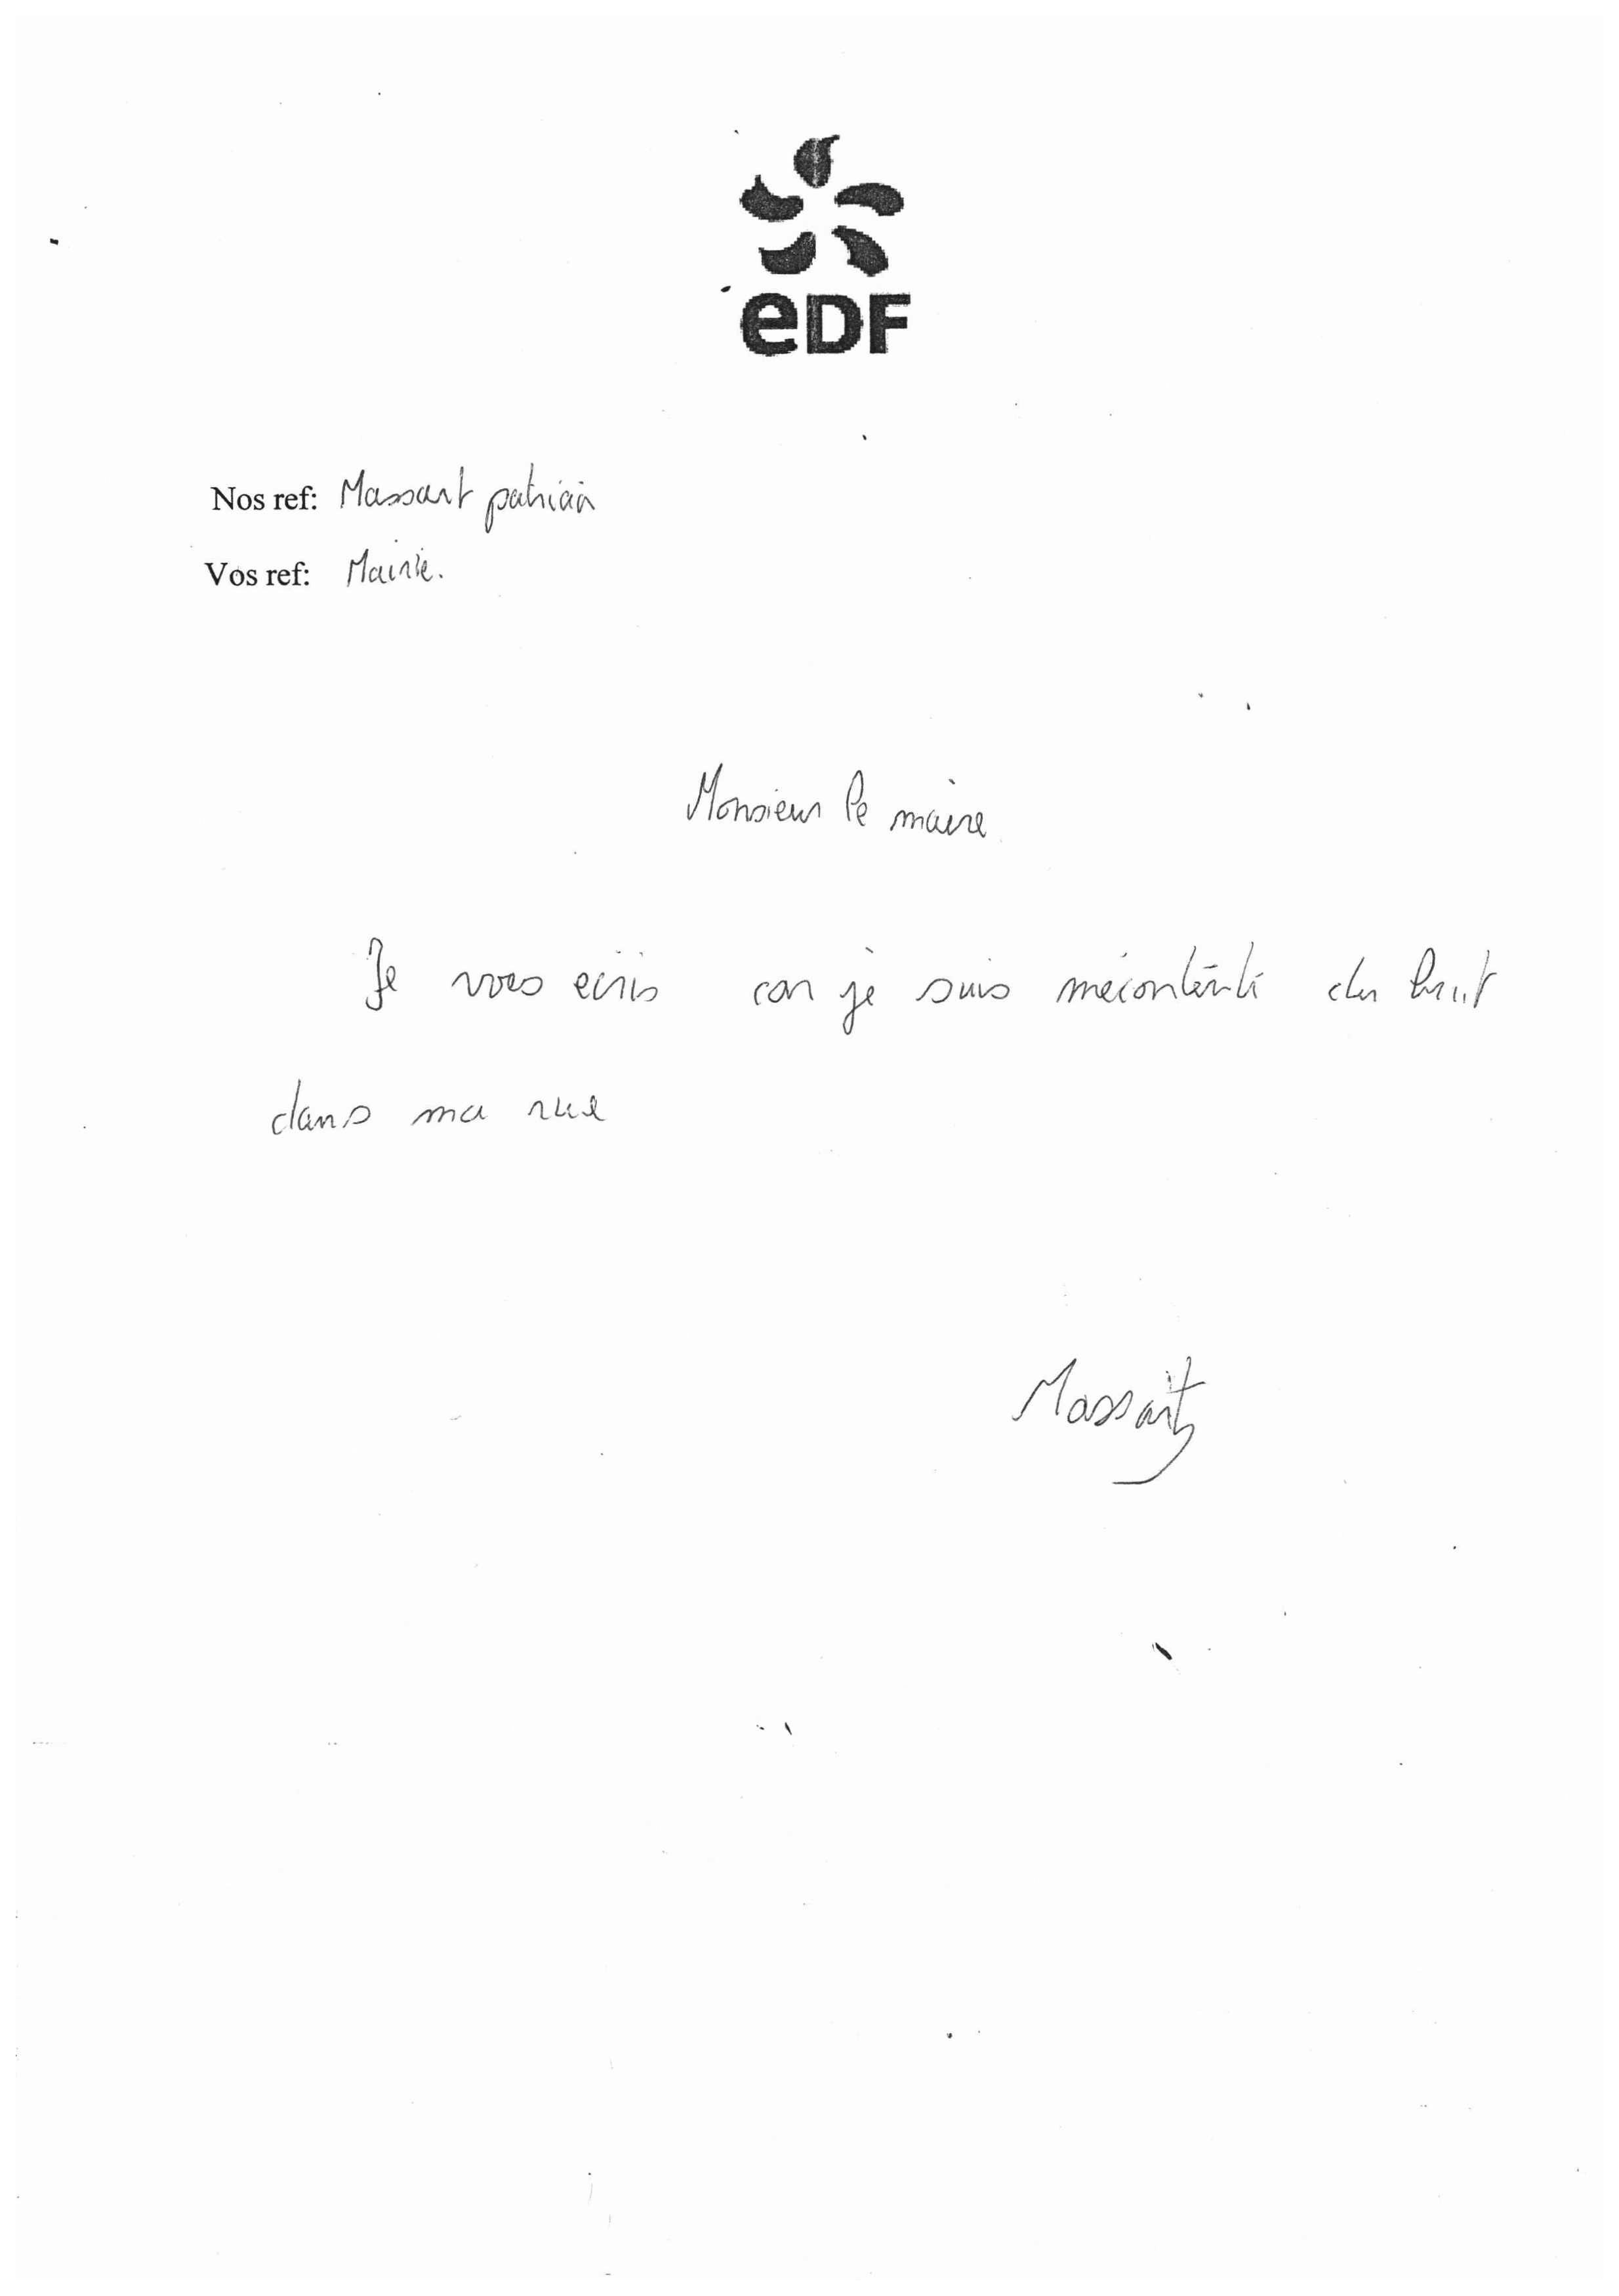 eDF
Nos ref: Massart patricia
Vos ref: Mairie.
Monsieur le maire
Je vous ecris car je suis mécontente du bruit
dans ma rue
Massart